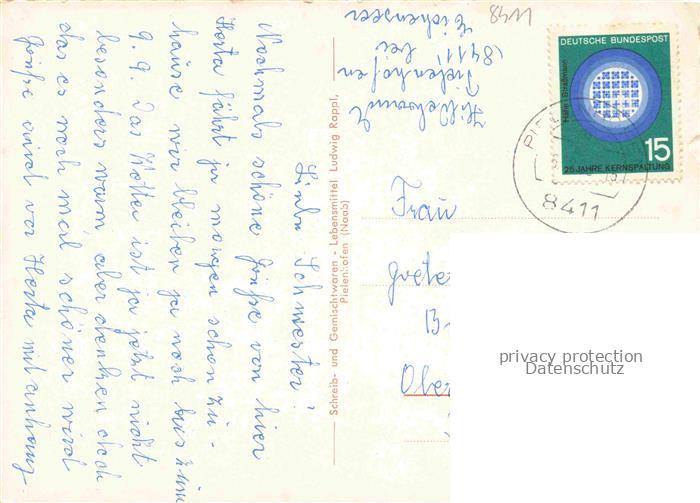 8411
Hildebrandt
Pielenhofen
(8411) bei
Eichensee
DEUTSCHE BUNDESPOST
Hahn-Straßmann
15
25 JAHRE KERNSPALTUNG
8411
Liebe Schwester!
Nochmals schöne Grüße von hier
Herta fährt ja morgen schon zu-
hause wir bleiben ja noch bis zum
9.9. Das Wetter ist ja jetzt nicht
besonders warm aber denken doch
das es noch mal schöner wird
Grüße wird vor Herta mit anhang
Schreib- und Gemischtwaren - Lebensmittel Ludwig Rappl,
Pielenhofen (Naab)
Frau
Grete
Ober
privacy protection
Datenschutz